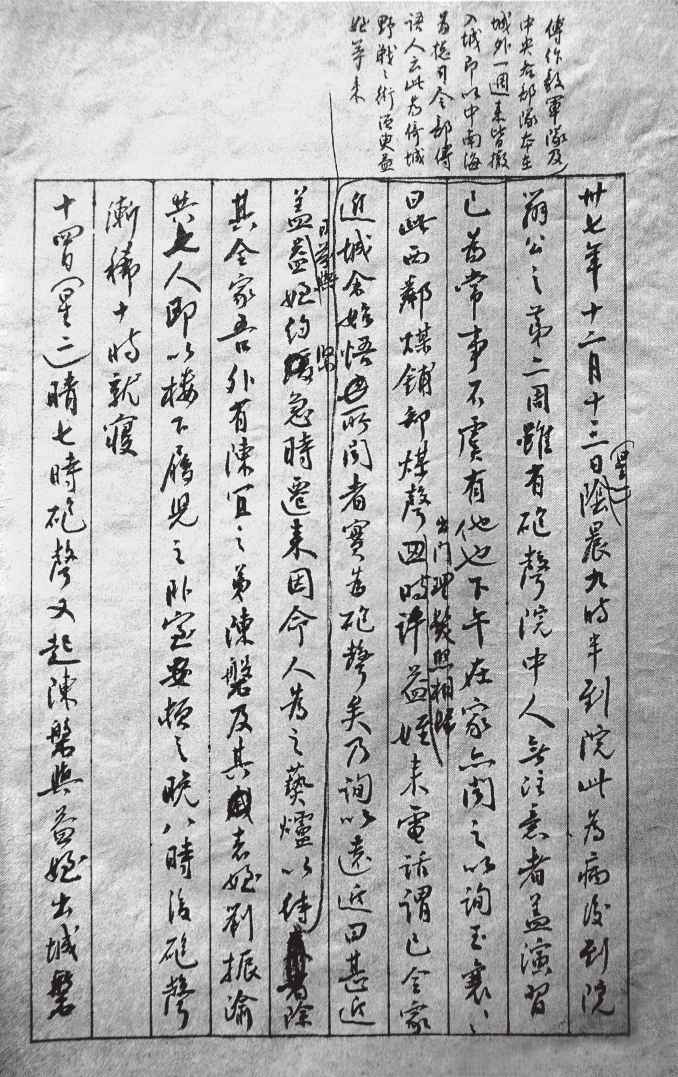 傅作義軍隊及
中央各部隊本在
城外一週来皆撤
入城即以中南海
為總司令部傅
語人云此為倚城
野戰之術
姪等来
卅七年十二月十三日(星一)陰晨九時半到院此為病後到院
辦公之第二周雖有砲聲院中人無注意者蓋演習
已為常事不虞有他也下午在家亦聞之以詢玉襄〻
出門理髮照相歸
曰此西鄰煤鋪卸煤聲四時許益姪来電話謂已全家
近城余始悟所聞者實為砲聲矣乃詢以遠近曰甚近
蓋益姪約急時遷来因命人為之爇爐以待除
其全家五口外有陳宜之弟陳槃及其表姪劉振渝
共七人即以樓下雁兒之卧室安頓之晚八時後砲聲
漸稀十時就寢
十四日(星二)晴七時砲聲又起陳槃與益姪出城槃